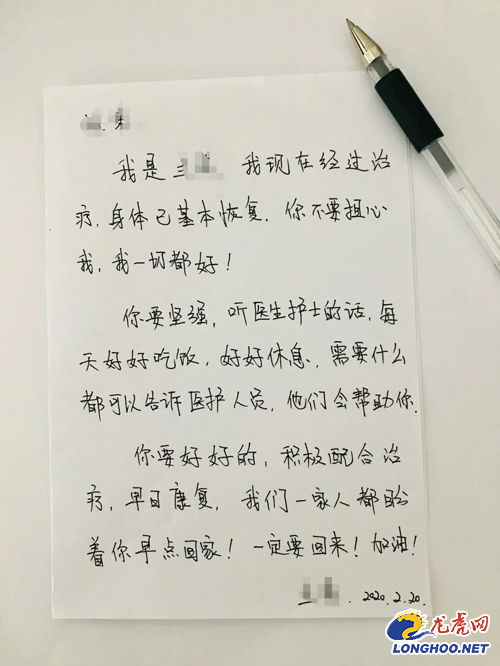 我是 我现在经过治
疗,身体已基本恢复. 你不要担心
我,我一切都好!
你要坚强,听医生护士的话,每
天好好吃饭,好好休息,需要什么
都可以告诉医护人员,他们会帮助你.
你要好好的,积极配合治
疗,早日康复,我们一家人都盼
着你早点回家!一定要回来!加油!
2020.2.20.
龙虎网
LONGHOO.NET